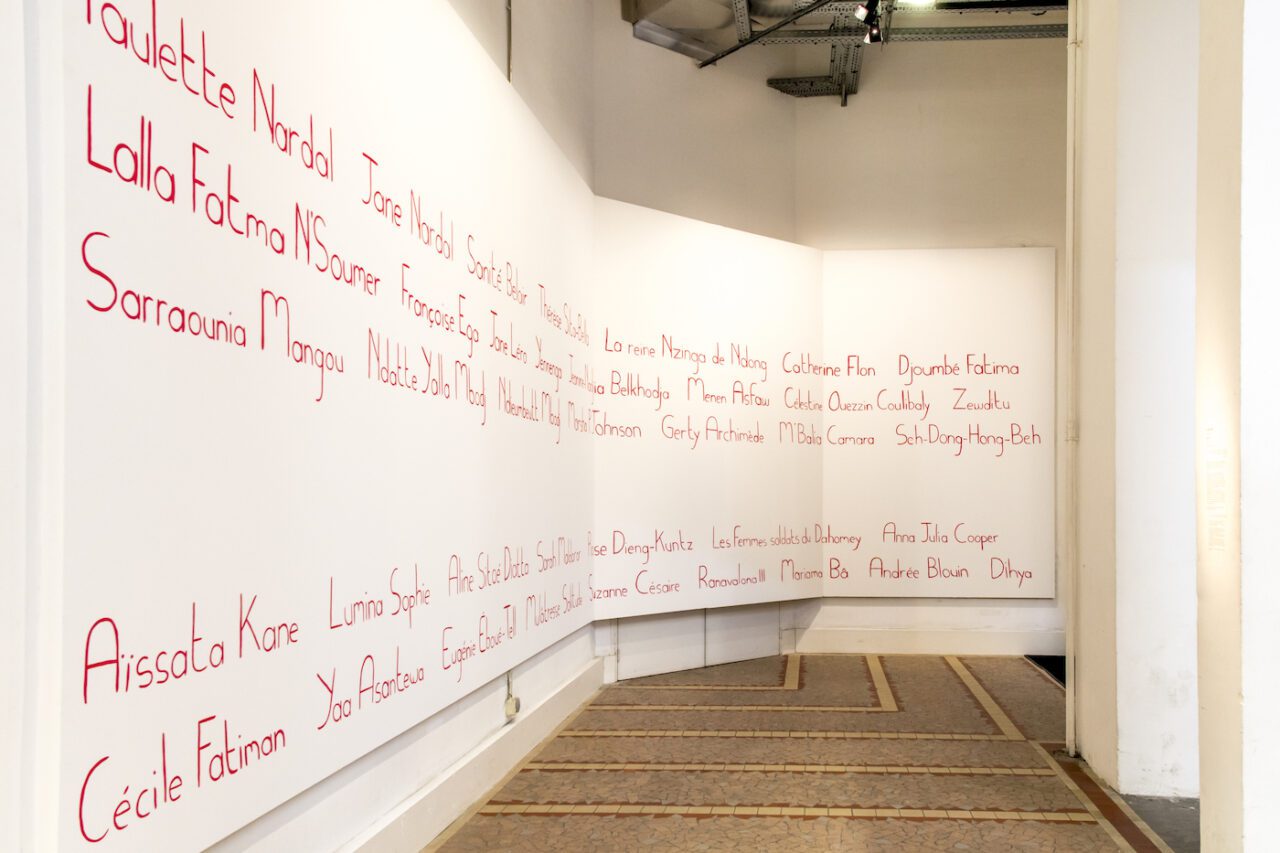 Paulette Nardal Jane Nardal Sanité Belair Thérèse Sita-Bella La reine Nzinga de Ndong Catherine Flon Djoumbé Fatima
Lalla Fatma N'Soumer Françoise Ega Jane Léro Yennenga Belkhodja Menen Asfaw Célestine Ouezzin Coulibaly Zewditu
Sarraounia Mangou Ndatte Yalla Mbodj Ndieumbeutt Mbodj Marsha P. Johnson Gerty Archimède M'Balia Camara Seh-Dong-Hong-Beh
Aïssata Kane Lumina Sophie Aline Sitoé Diatta Sarah Maldoror Rose Dieng-Kuntz Les Femmes soldats du Dahomey Anna Julia Cooper
Cécile Fatiman Yaa Asantewa Eugénie Éboué-Tell Mulâtresse Solitude Suzanne Césaire Ranavalona III Mariama Bâ Andrée Blouin Dihya